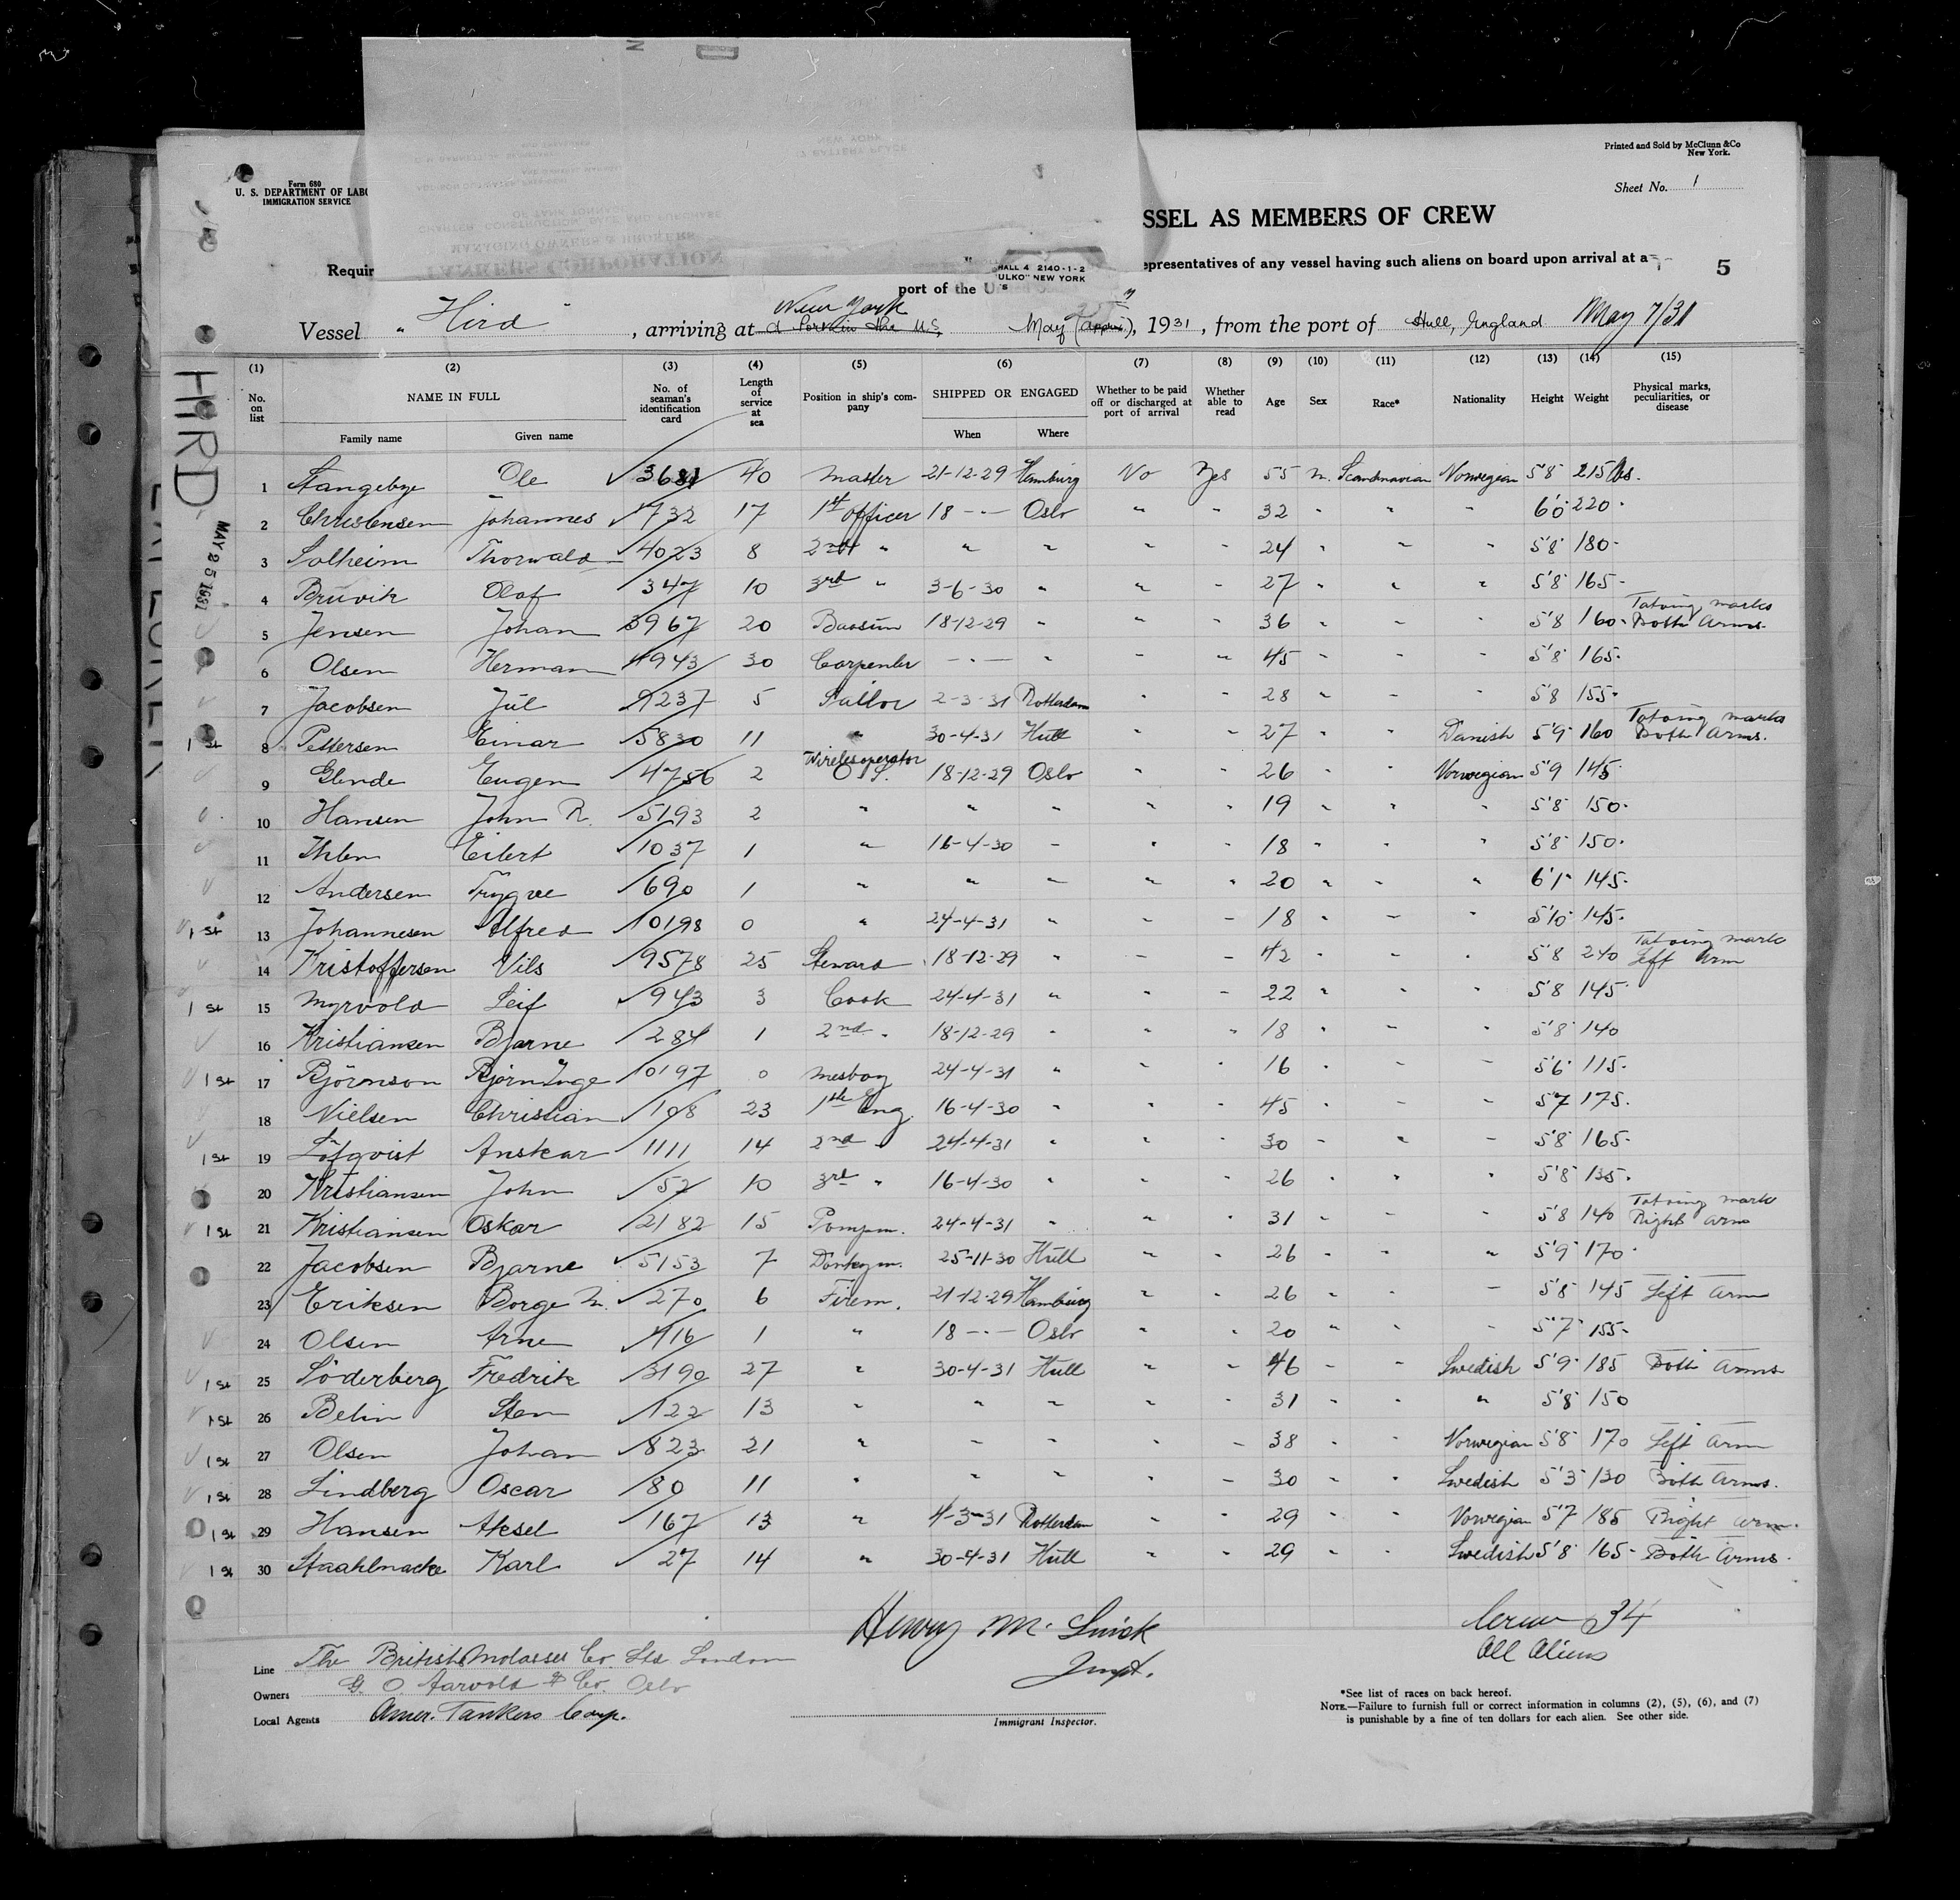 Printed and Sold by McClunn & Co
New York.
Form 680
U. S. DEPARTMENT OF LABO
IMMIGRATION SERVICE
Sheet No. 1
SSEL AS MEMBERS OF CREW
HALL 4 2140-1-2
ULKO" NEW YORK
Requir
epresentatives of any vessel having such aliens on board upon arrival at a
5
port of the U
Vessel "Hird", arriving at New York a Port in the U.S. May 25 (appr.), 1931, from the port of Hull, England May 7/31
HIRD
MAY 25 1931
(1) (2) (3) (4) (5) (6) (7) (8) (9) (10) (11) (12) (13) (14) (15)
No. on list NAME IN FULL Family name Given name No. of seaman's identification card Length of service at sea Position in ship's company SHIPPED OR ENGAGED When Where Whether to be paid off or discharged at port of arrival Whether able to read Age Sex Race* Nationality Height Weight Physical marks, peculiarities, or disease
1 Stangebye Ole 3681 40 Master 21-12-29 Hamburg No Yes 55 m. Scandinavian Norwegian 5'8 215 lbs.
2 Christensen Johannes 732 17 1st officer 18 -"- Oslo " " 32 " " " 6'0 220
3 Solheim Thorwald 4023 8 2nd " " " " " 24 " " " 5'8 180
4 Bruvik Olaf 347 10 3rd " 3-6-30 " " " 27 " " " 5'8 165
5 Jensen Johan 3967 20 Baosun 18-12-29 " " " 36 " " " 5'8 160 Tatoing marks Both Arms.
6 Olsen Herman 4943 30 Carpenter -"- " " " 45 " " " 5'8 165
7 Jacobsen Jul 9237 5 Sailor 2-3-31 Rotterdam " " 28 " " " 5'8 155
1 st 8 Pettersen Einar 5830 11 " 30-4-31 Hull " " 27 " " Danish 5'9 160 Tatoing marks Both Arms.
9 Glende Eugen 4756 2 Wireles operator O.S. 18-12-29 Oslo " " 26 " " Norwegian 5'9 145
10 Hansen John R. 5193 2 " " " " " 19 " " " 5'8 150
11 Ihlen Eilert 1037 1 " 16-4-30 " " " 18 " " " 5'8 150
12 Andersen Trygve 690 1 " " " " " 20 " " " 6'1 145
1 st 13 Johannesen Alfred 10198 0 " 24-4-31 " " " 18 " " " 5'10 145
14 Kristoffersen Nils 9578 25 Steward 18-12-29 " " " 42 " " " 5'8 240 Tatoing marks Left Arm
1 st 15 Myrvold Leif 943 3 Cook 24-4-31 " " " 22 " " " 5'8 145
16 Kristiansen Bjarne 284 1 2nd " 18-12-29 " " " 18 " " " 5'8 140
1 st 17 Björnson Björn Inge 10197 0 Mesboy 24-4-31 " " " 16 " " " 5'6 115
18 Nielsen Christian 108 23 1ste Eng 16-4-30 " " " 45 " " " 5'7 175
1 st 19 Löfqvist Anskar 1111 14 2nd " 24-4-31 " " " 30 " " " 5'8 165
20 Kristiansen John 52 10 3rd " 16-4-30 " " " 26 " " " 5'8 135
1 st 21 Kristiansen Oskar 2182 15 Pompm. 24-4-31 " " " 31 " " " 5'8 140 Tatoing mark Right Arm
22 Jacobsen Bjarne 5153 7 Donkeym. 25-11-30 Hull " " 26 " " " 5'9 170
23 Eriksen Borge M. 270 6 Firem. 21-12-29 Hamburg " " 26 " " " 5'8 145 Left Arm
24 Olsen Arne 416 1 " 18 -"- Oslo " " 20 " " " 5'7 155
1 st 25 Söderberg Fredrik 3190 27 " 30-4-31 Hull " " 46 " " Swedish 5'9 185 Both Arms
1 st 26 Belin Sten 122 13 " " " " " 31 " " " 5'8 150
1 st 27 Olsen Johan 823 21 " " " " " 38 " " Norwegian 5'8 170 Left Arm
1 st 28 Lindberg Oscar 80 11 " " " " " 30 " " Swedish 5'3 130 Both Arms.
1 st 29 Hansen Aksel 167 13 " 4-3-31 Rotterdam " " 29 " " Norwegian 5'7 185 Right Arm.
1 st 30 Staahlnacke Karl 27 14 " 30-4-31 Hull " " 29 " " Swedish 5'8 165 Both Arms.
Henry Mc
Inspt.
Crew 34
All Aliens
Line The British Molasses Co. Ltd London
Owners G. O. Aarvold & Co. Oslo
Local Agents Amer. Tankers Corp.
Immigrant Inspector.
*See list of races on back hereof.
NOTE.—Failure to furnish full or correct information in columns (2), (5), (6), and (7)
is punishable by a fine of ten dollars for each alien. See other side.